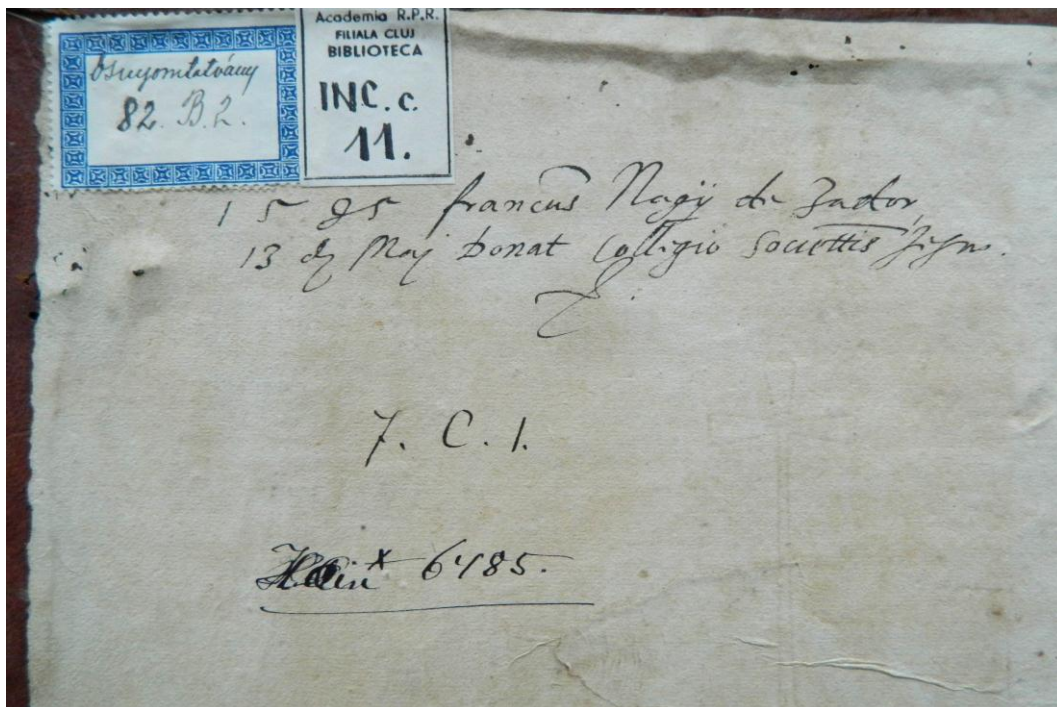 Ősnyomtatvány
82. B. 2.
Academia R.P.R.
FILIALA CLUJ
BIBLIOTECA
INC. c.
11.
1585 francus Nagÿ de Zador
13 dÿ Maj Donat Collegio Societtis Jesu.
7. C. 1.
Hain x 6485.